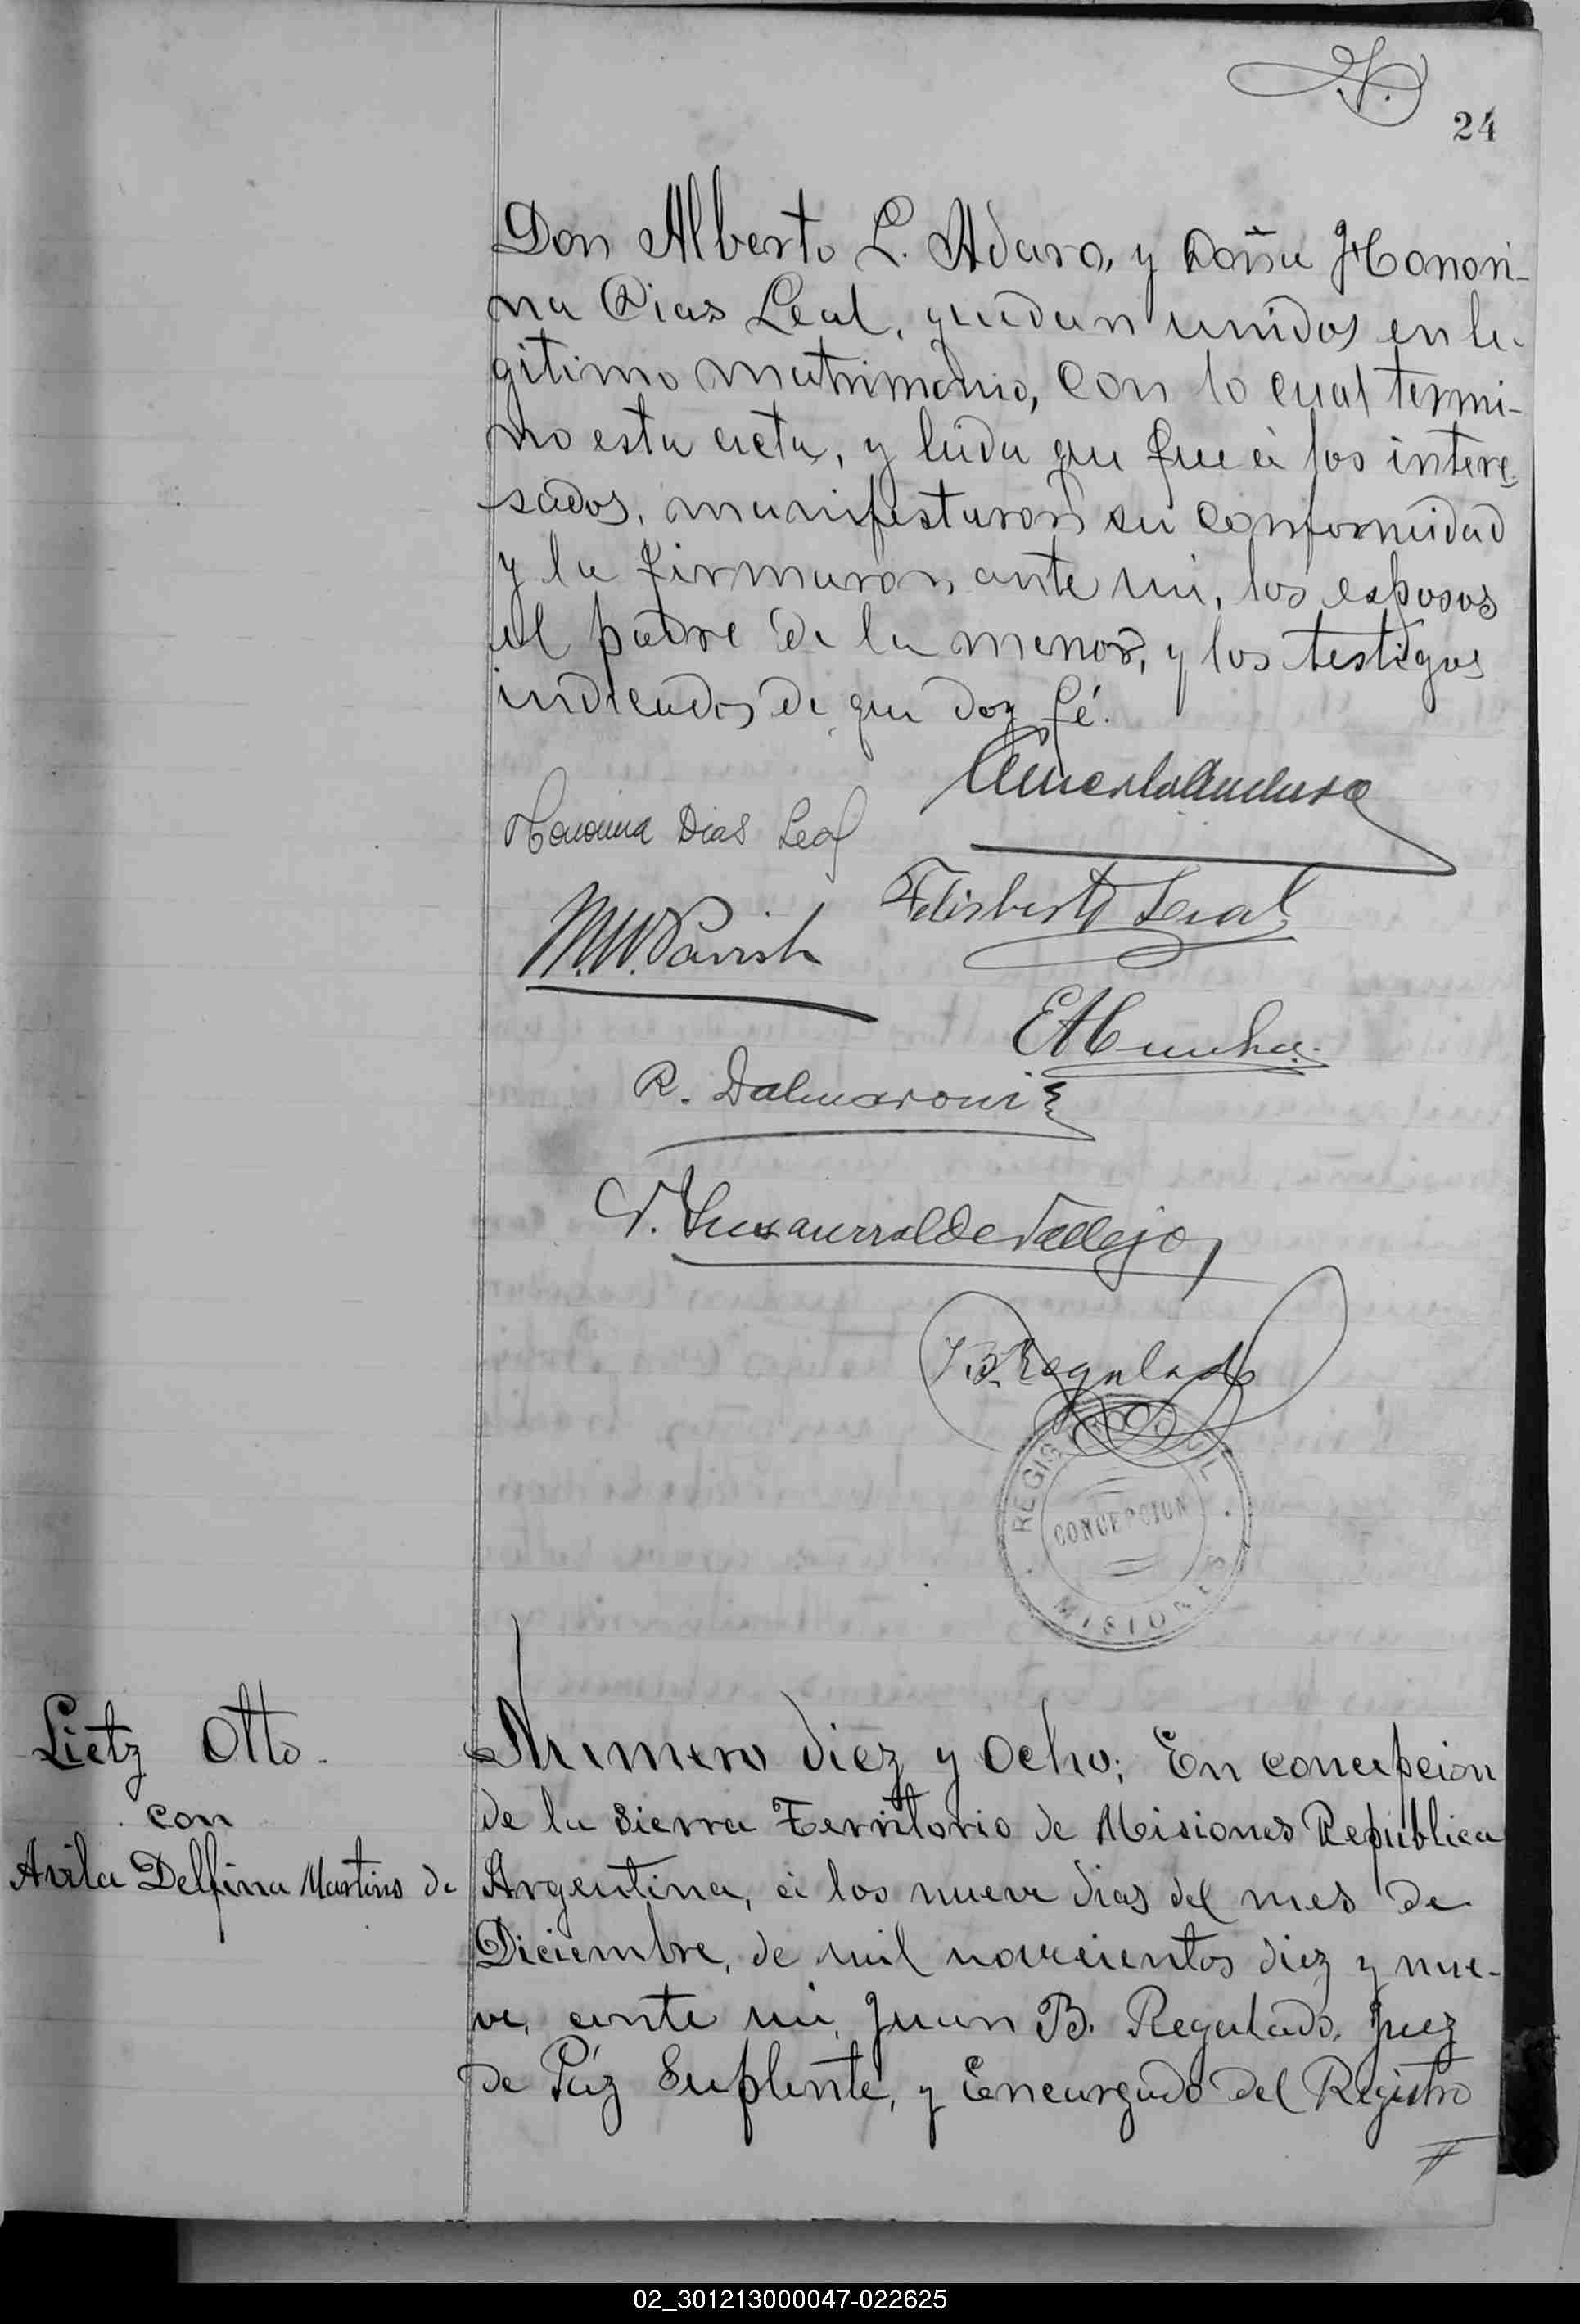 24
Don Alberto L. Adaro, y Doña Honori-
na Dias Leal, quedan unidos en le-
gitimo matrimonio, con lo cual termi-
no esta acta, y leida que fue á los intere-
sados, manifestaron su conformidad
y la firmaron ante mi, los esposos
el padre de la menor, y los testigos
indicados de que doy fé.
Honorina Dias Leal
Felisberto Leal
M.W. Parish
E A Cunha
R. Dalmaroni
Vallejo
J B. Regulado
REGISTRO CIVIL
CONCEPCION
MISIONES
Lietz Otto.
con
Avila Delfina Martins de
Numero diez y ocho; En concepcion
de la Sierra Territorio de Misiones Republica
Argentina, á los nueve dias del mes de
Diciembre, de mil novecientos diez y nue-
ve, ante mi, Juan B. Regulado, Juez
de Páz Suplente, y Encargado del Registro
02_301213000047-022625